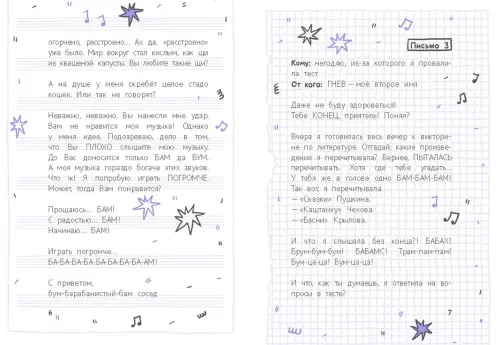 огорчено, расстроено... Ах да, «расстроено»
уже было. Мир вокруг стал кислым, как щи
из квашеной капусты. Вы любите такие щи?
А на душе у меня скребёт целое стадо
кошек. Или так не говорят?
Неважно, неважно. Вы нанесли мне удар.
Вам не нравится моя музыка! Однако
у меня идея. Подозреваю, дело в том,
что Вы ПЛОХО слышите мою музыку.
До Вас доносится только БАМ да БУМ.
А моя музыка гораздо богаче этих звуков.
Что ж! Я попробую играть ПОГРОМЧЕ.
Может, тогда Вам понравится?
Прощаюсь... БАМ!
С радостью... БАМ!
Начинаю... БАМ!
Играть погромче...
БА-БА-БА-БА-БА-БА-БА-БА-АМ!
С приветом,
бум-барабанистый-бам сосед
6
Письмо 3
Кому: негодяю, из-за которого я провали-
ла тест
От кого: ГНЕВ — моё второе имя
Даже не буду здороваться!
Тебе КОНЕЦ, приятель! Понял?
Вчера я готовилась весь вечер к виктори-
не по литературе. Отгадай, какие произве-
дения я перечитывала? Вернее, ПЫТАЛАСЬ
перечитывать. Хотя где тебе угадать...
У тебя же в голове одно БАМ-БАМ-БАМ!
Так вот, я перечитывала:
— «Сказки» Пушкина.
— «Каштанку» Чехова.
— «Басни» Крылова.
И что я слышала без конца?! БАБАХ!
Брум-бум-бум! БАБАМС! Трам-пам-пам!
Бум-ца-ца! Бум-ца-ца!
И что, как ты думаешь, я ответила на во-
просы в тесте?
7